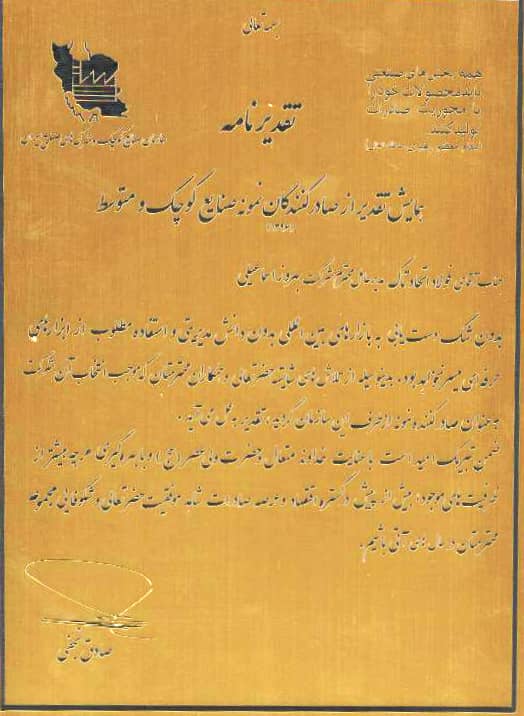 بسمه تعالی
همه بخش های صنعتی
باید محصولات خود را
با محوریت صادرات
تولید کنند
سازمان صنایع کوچک و شهرک های صنعتی ایران
تقدیرنامه
همایش تقدیر از صادرکنندگان نمونه صنایع کوچک و متوسط
(۱۳۹۲)
جناب آقای فولاد اتحاد تک مدیرعامل محترم شرکت بهروز اسماعیلی
بدون شک دست یابی به بازارهای بین المللی بدون دانش مدیریتی و استفاده مطلوب از ابزارهای
حرفه ای میسر نخواهد بود. بدینوسیله از تلاش های شایسته حضرتعالی و همکاران محترمتان که موجب انتخاب آن شرکت
به عنوان صادرکننده نمونه از طرف این سازمان گردید، تقدیر به عمل می آید.
ضمن تبریک امید است با عنایت خداوند متعال و حضرت ولی عصر (عج) و با بهره گیری هر چه بیشتر از
ظرفیت های موجود، بیش از پیش در گستره اقتصاد و عرصه صادرات شاهد موفقیت حضرتعالی و شکوفایی مجموعه
محترمتان در سال های آتی باشیم.
صادق نجفی